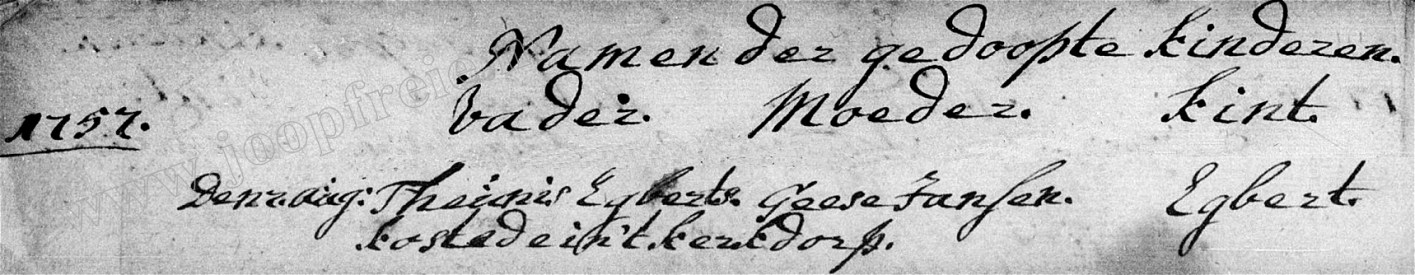 Namen der gedoopte kinderen.
1757. vader. Moeder. kint.
Den 2. aug: Theunis Egberts. Geese Jansen. Egbert.
kostede in't kerkdorp.
www.joopfreie